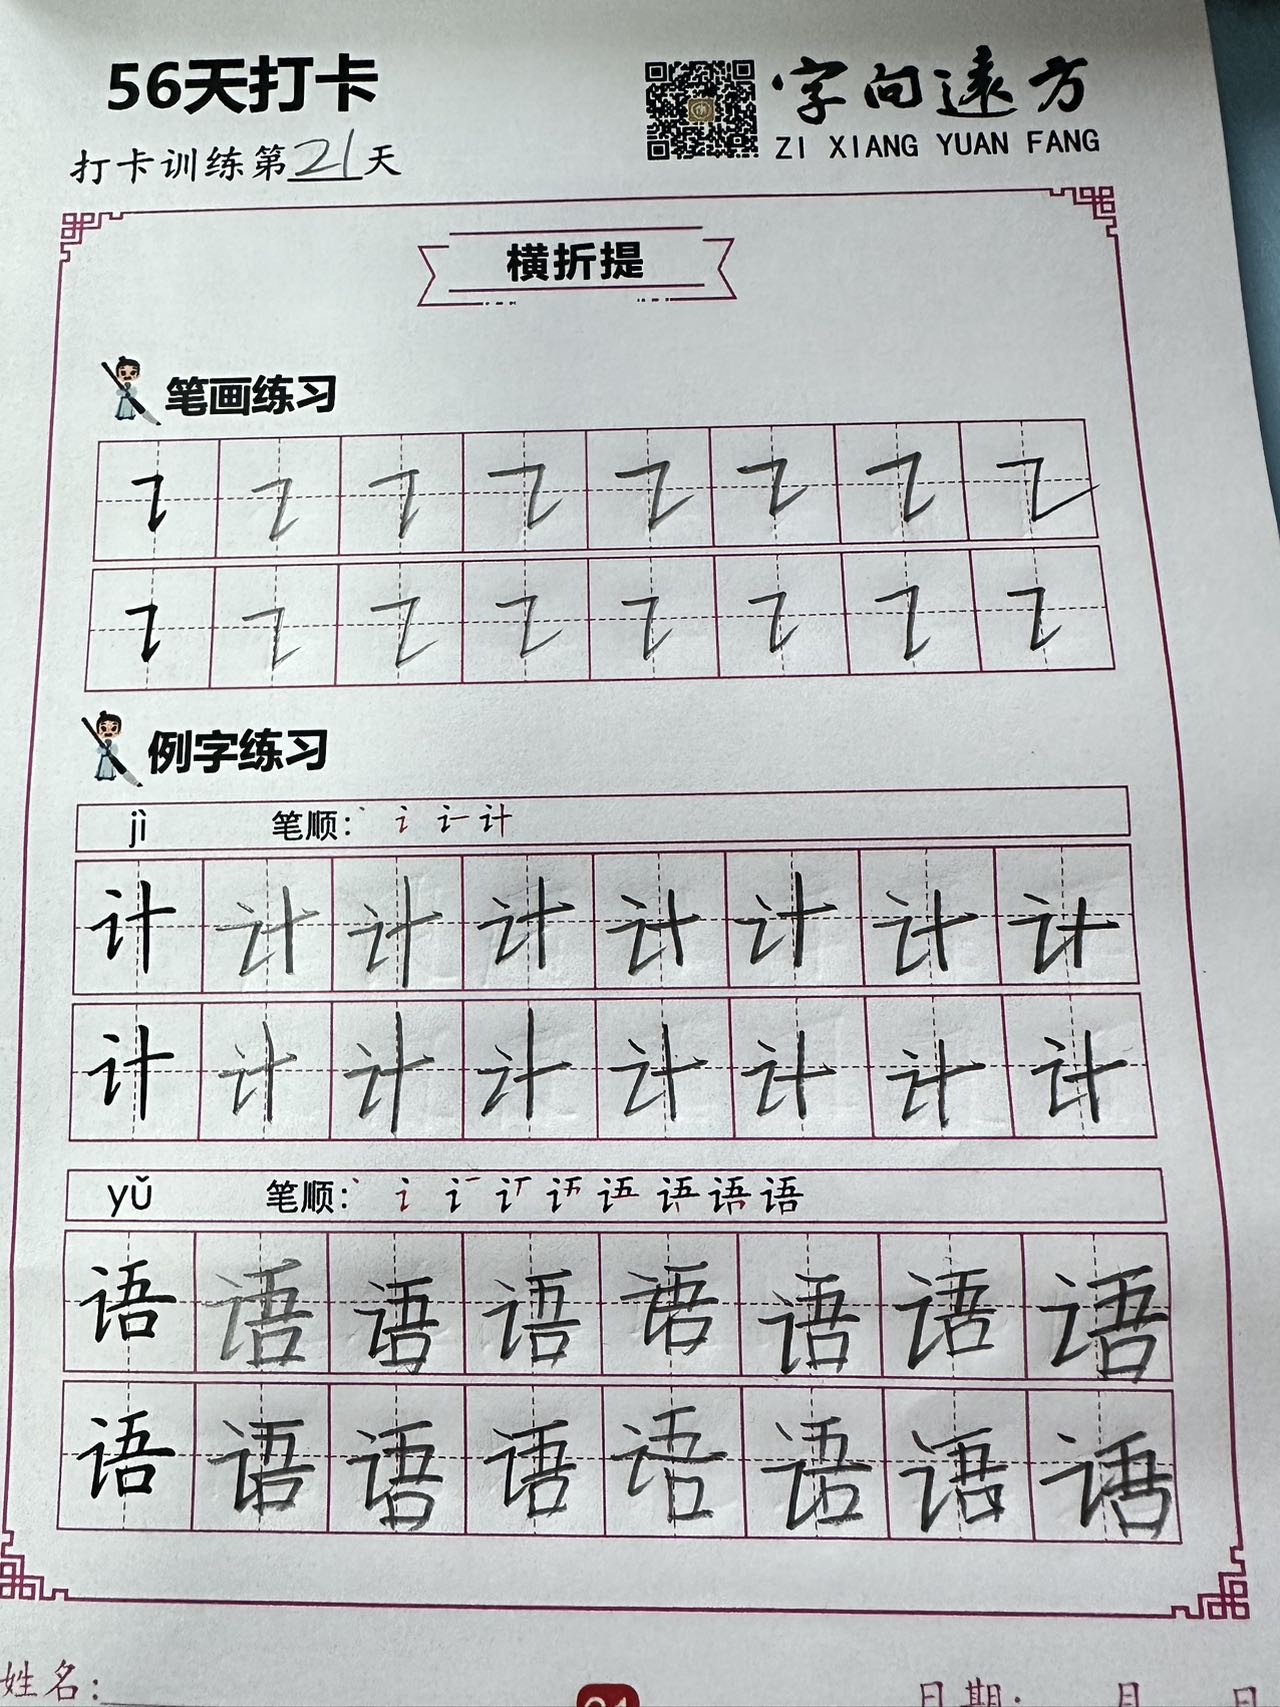 56天打卡
字向遠方
ZI XIANG YUAN FANG
打卡训练第21天
横折提
笔画练习
例字练习
jì 笔顺:
计 计 计 计 计 计 计 计
计 计 计 计 计 计 计 计
yǔ 笔顺: 语
语 语 语 语 语 语 语 语
语 语 语 语 语 语 语 语
姓名:
日期: 月 日